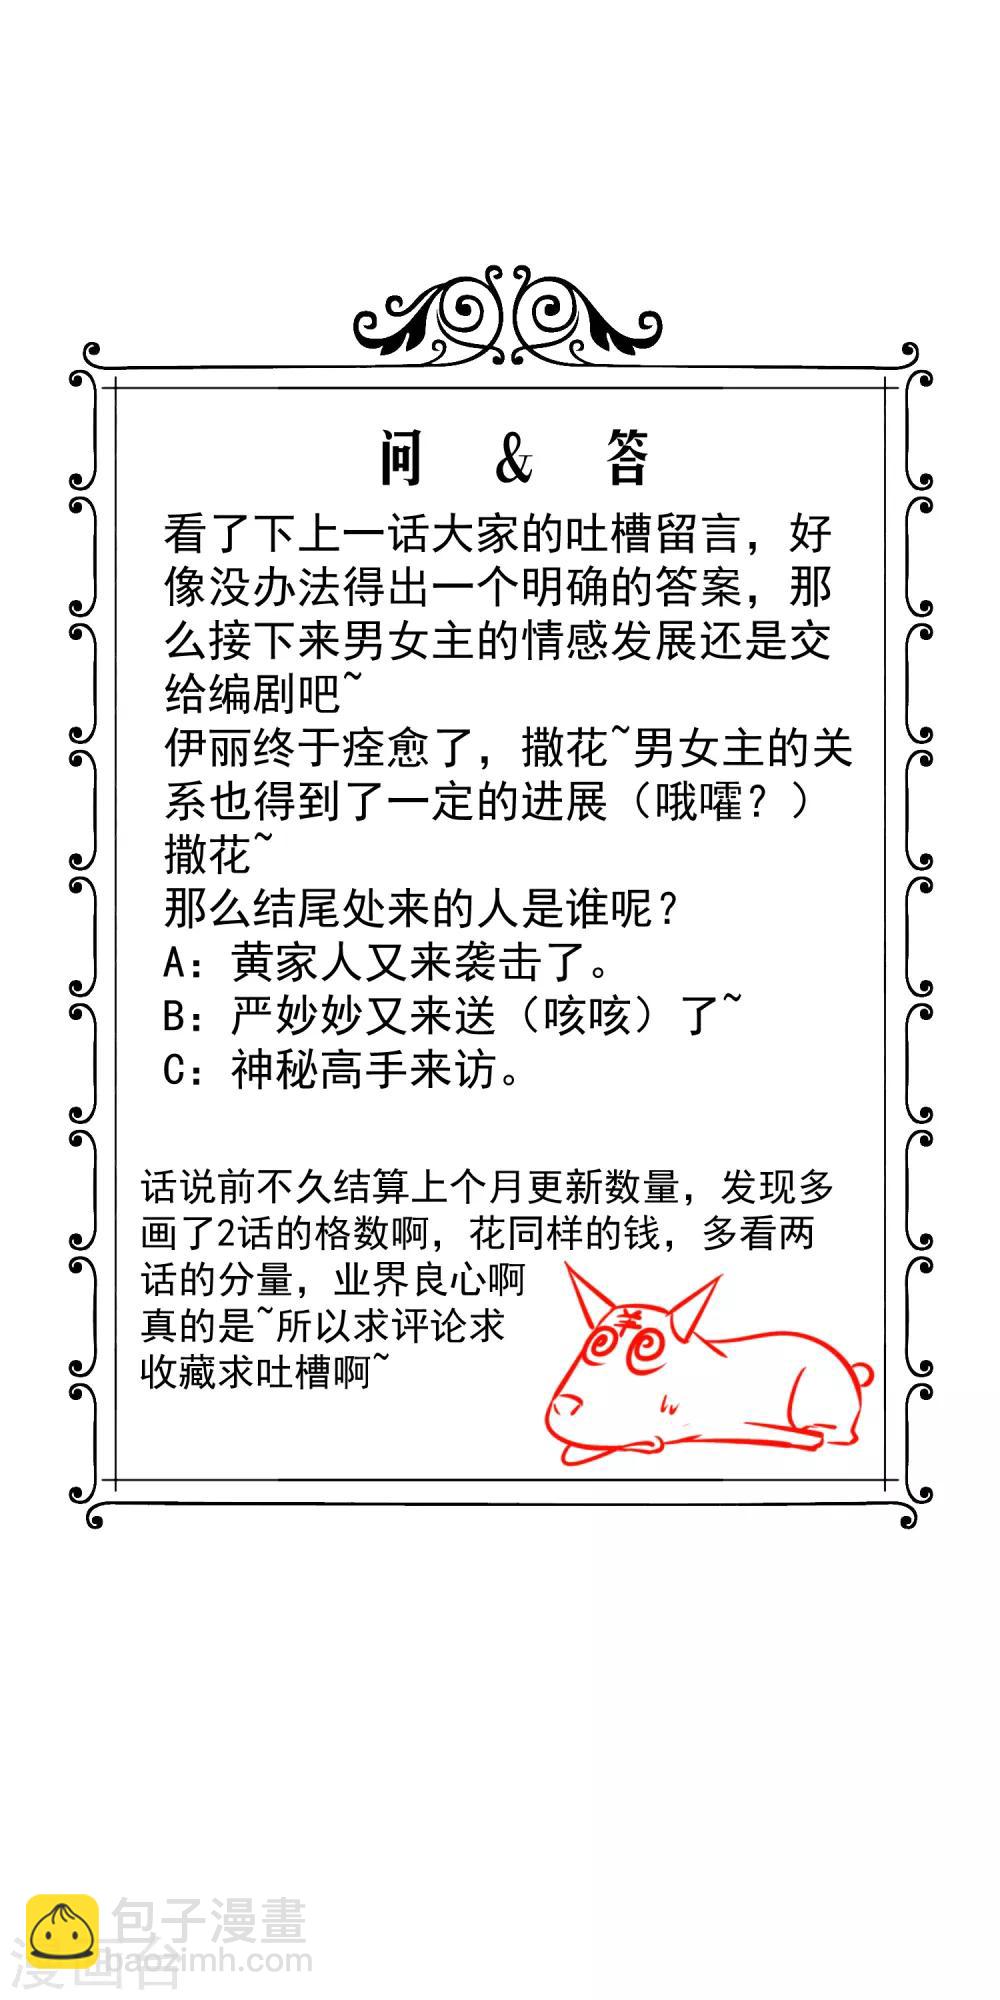 问 & 答
看了下上一话大家的吐槽留言，好
像没办法得出一个明确的答案，那
么接下来男女主的情感发展还是交
给编剧吧~
伊丽终于痊愈了，撒花~男女主的关
系也得到了一定的进展（哦嚯？）
撒花~
那么结尾处来的人是谁呢？
A：黄家人又来袭击了。
B：严妙妙又来送（咳咳）了~
C：神秘高手来访。
话说前不久结算上个月更新数量，发现多
画了2话的格数啊，花同样的钱，多看两
话的分量，业界良心啊
真的是~所以求评论求
收藏求吐槽啊~
包子漫畫
baozimh.com
漫画台